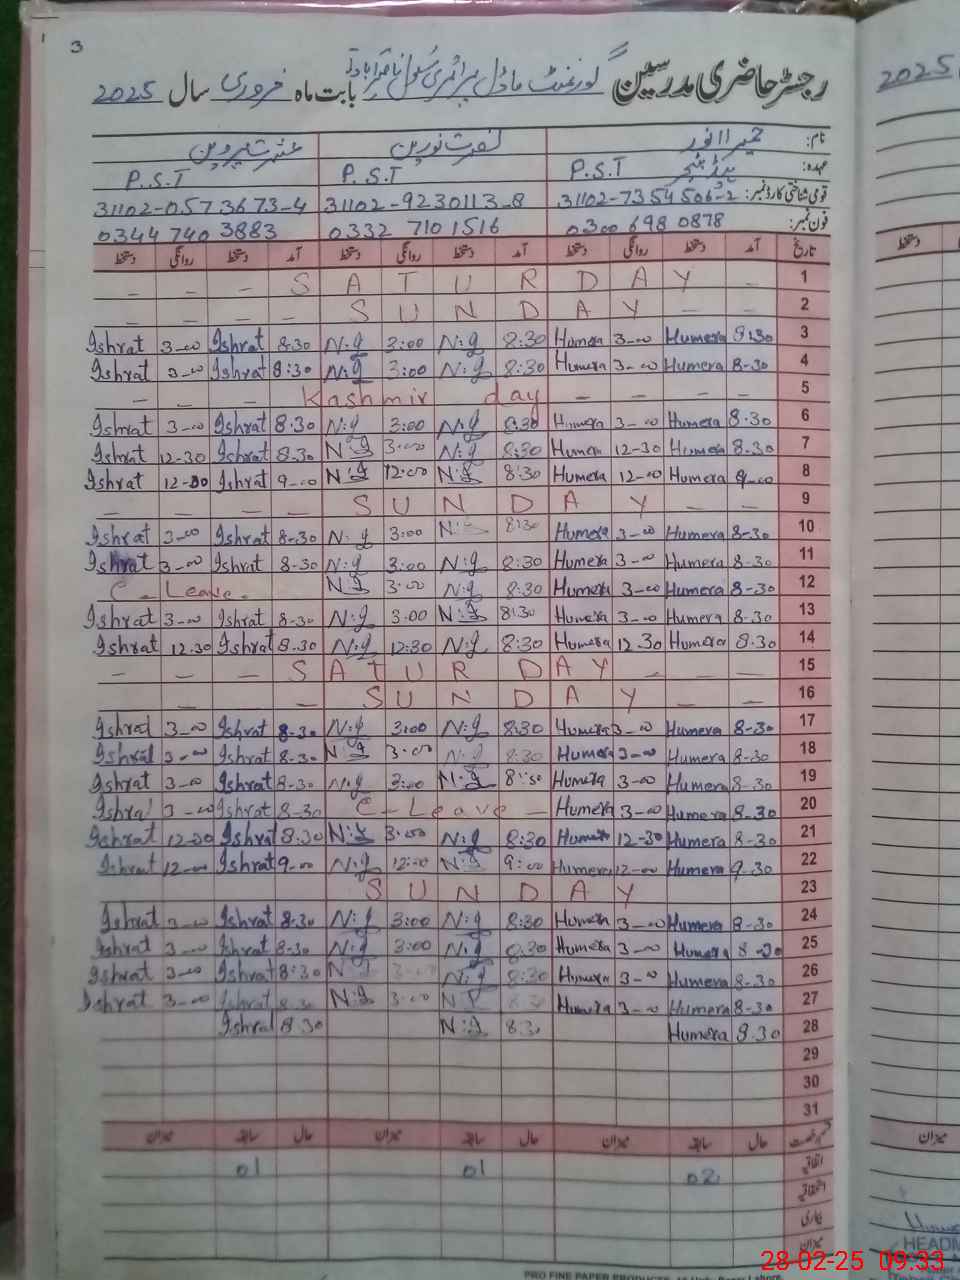 3
رجسٹر حاضری مدرسین گورنمنٹ ماڈل پرائمری سکول بابت ماہ فروری سال 2025
2025
نام: حمیرا انور نصرت نورین عشرت پروین
عہدہ: P.S.T P.S.T P.S.T
قومی شناختی کارڈ نمبر: 31102-7354506-2 31102-9230113-8 31102-0573673-4
فون نمبر: 0300 698 0878 0332 710 1516 0344 740 3883
تاریخ آمد دستخط روانگی دستخط آمد دستخط روانگی دستخط آمد دستخط روانگی دستخط
- - - S A T U R D A Y - 1
- - - - S U N D A Y - - 2
Ishrat 3-00 Ishrat 8.30 N:g 3:00 N:g 8:30 Humera 3-00 Humera 8.30 3
Ishrat 3-00 Ishrat 8:30 N:g 3:00 N:g 8:30 Humera 3-00 Humera 8-30 4
- - - Kashmir day - - - - 5
Ishrat 3-00 Ishrat 8.30 N:g 3:00 N:g 8:30 Humera 3-00 Humera 8.30 6
Ishrat 12-30 Ishrat 8.30 N:g 3:00 N:g 8:30 Humera 12-30 Humera 8.30 7
Ishrat 12-30 Ishrat 9-00 N:g 12:00 N:g 8:30 Humera 12-00 Humera 9-00 8
- - - - S U N D A Y - - 9
Ishrat 3-00 Ishrat 8-30 N:g 3:00 N: 8:30 Humera 3-00 Humera 8-30 10
Ishrat 3-00 Ishrat 8-30 N:g 3:00 N:g 8:30 Humera 3-00 Humera 8-30 11
C - Leave - N:g 3:00 N:g 8:30 Humera 3-00 Humera 8-30 12
Ishrat 3-00 Ishrat 8-30 N:g 3:00 N:g 8:30 Humera 3-00 Humera 8-30 13
Ishrat 12.30 Ishrat 8.30 N:g 12:30 N:g 8:30 Humera 12.30 Humera 8.30 14
- - - S A T U R D A Y - - - 15
- S U N D A Y - - 16
Ishrat 3-00 Ishrat 8-30 N:g 3:00 N:g 8:30 Humera 3-00 Humera 8-30 17
Ishrat 3-00 Ishrat 8-30 N:g 3:00 N:g 8:30 Humera 3-00 Humera 8-30 18
Ishrat 3-00 Ishrat 8-30 N:g 3:00 N:g 8:30 Humera 3-00 Humera 8-30 19
Ishrat 3-00 Ishrat 8-30 C - Leave - Humera 3-00 Humera 8-30 20
Ishrat 12-30 Ishrat 8.30 N:g 3:00 N:g 8:30 Humera 12-30 Humera 8-30 21
Ishrat 12-00 Ishrat 9-00 N:g 12:00 N:g 9:00 Humera 12-00 Humera 9.30 22
S U N D A Y 23
Ishrat 3-00 Ishrat 8-30 N:g 3:00 N:g 8:30 Humera 3-00 Humera 8-30 24
Ishrat 3-00 Ishrat 8-30 N:g 3:00 N:g 8.30 Humera 3-00 Humera 8-30 25
Ishrat 3-00 Ishrat 8:30 N:g 3:00 N:g 8:30 Humera 3-00 Humera 8-30 26
Ishrat 3-00 Ishrat 8.30 N:g 3:00 8:30 Humera 3-00 Humera 8-30 27
Ishrat 8.30 N:g 8:30 Humera 8.30 28
29
30
31
حال سابقہ میزان حال سابقہ میزان حال سابقہ میزان
اتفاقیہ 02 01 01
استحقاقیہ
بیماری
میزان
میزان
HEADM
28-02-25 09:33
PRO FINE PAPER PRODUCTS